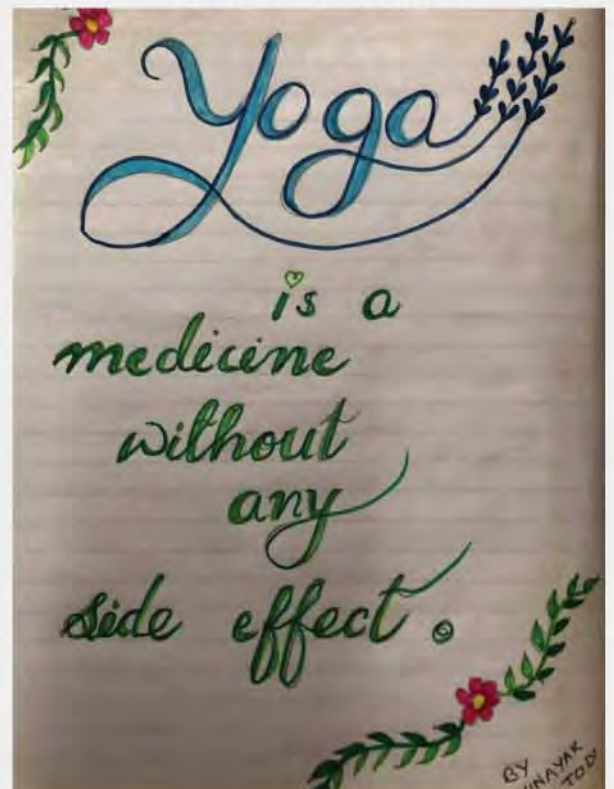 Yoga
is a
medicine
without
any
side effect.
BY
VINAYAK
TODI